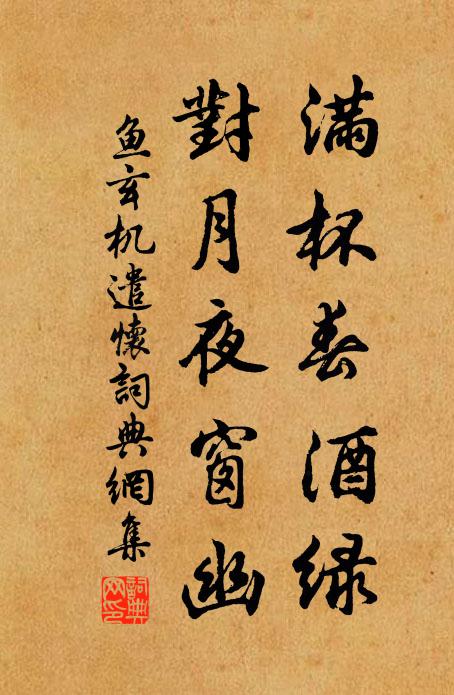 满杯春酒绿
對月夜窗幽
鱼玄机遣懷詞典網集
詞典
网印